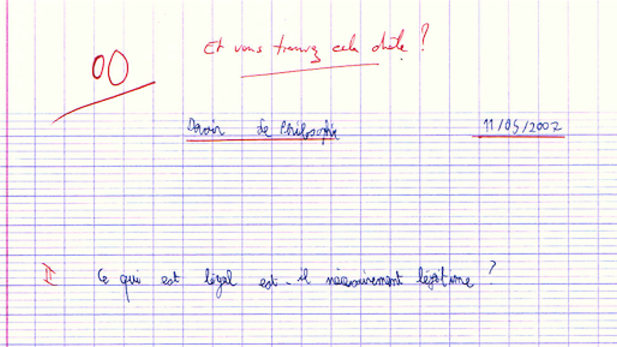 Et vous trouvez cela drôle ?
00
Devoir de Philosophie 11/05/2007
II Ce qui est légal est-il nécessairement légitime ?